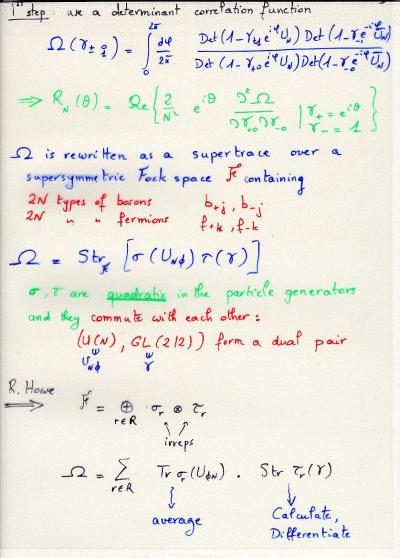 1st step: use a determinant correlation function
Ω(γ±,0/1) = ∫₀^{2π} dφ/2π Det(1-γ+1 e^{iφ} U_N) Det(1-γ-1 e^{-iφ} Ū_N) / Det(1-γ+0 e^{iφ} U_N) Det(1-γ-0 e^{-iφ} Ū_N)
⇒ R_N(θ) = Re{ 2/N² e^{iθ} ∂²Ω/∂γ+0 ∂γ-0 | γ+ = e^{iθ}
γ- = 1 }
Ω is rewritten as a supertrace over a
supersymmetric Fock space F containing
2N types of bosons b+j, b-j
2N " " fermions f+k, f-k
Ω = Str_F [σ(U_Nφ) τ(γ)]
σ, τ are quadratic in the particle generators
and they commute with each other:
(U(N), GL(2|2)) form a dual pair
U_Nφ γ
R. Howe
⇒ F = ⊕_{r∈R} σ_r ⊗ τ_r
irreps
Ω = Σ_{r∈R} Tr σ_r(U_φN) . Str τ_r(γ)
average Calculate,
Differentiate